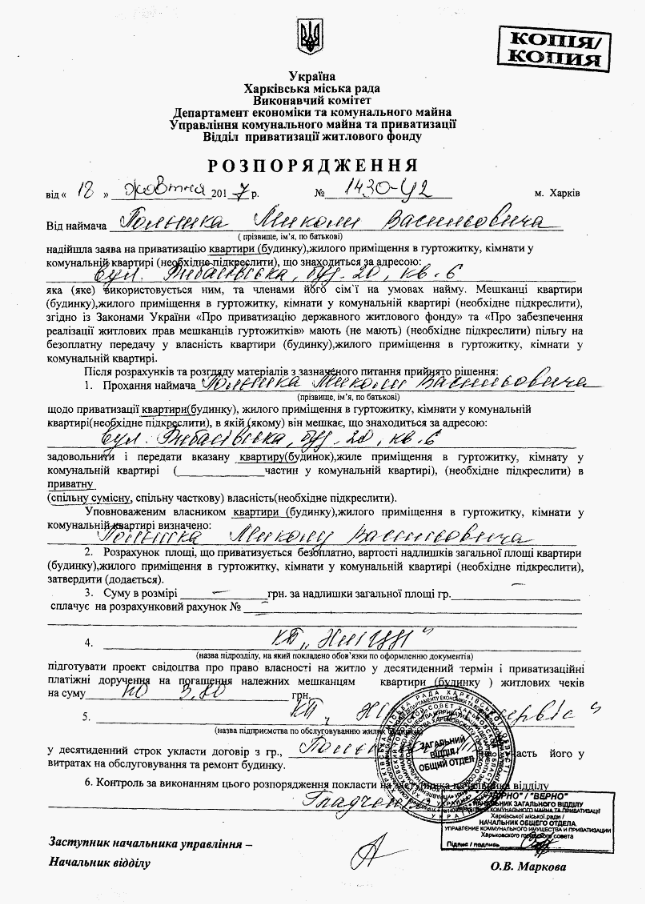 КОПІЯ/
КОПИЯ
Україна
Харківська міська рада
Виконавчий комітет
Департамент економіки та комунального майна
Управління комунального майна та приватизації
Відділ приватизації житлового фонду
РОЗПОРЯДЖЕННЯ
від « 12 » жовтня 2017 р. № 1430-У2 м. Харків
Від наймача Польника Миколи Васильовича
( прізвище, ім'я, по батькові)
надійшла заява на приватизацію квартири (будинку),жилого приміщення в гуртожитку, кімнати у
комунальній квартирі (необхідне підкреслити), що знаходиться за адресою:
вул. Рибасівська, буд. 20, кв. 6
яка (яке) використовується ним, та членами його сім'ї на умовах найму. Мешканці квартири
(будинку),жилого приміщення в гуртожитку, кімнати у комунальній квартирі (необхідне підкреслити),
згідно із Законами України «Про приватизацію державного житлового фонду» та «Про забезпечення
реалізації житлових прав мешканців гуртожитків» мають (не мають) (необхідне підкреслити) пільгу на
безоплатну передачу у власність квартири (будинку),жилого приміщення в гуртожитку, кімнати у
комунальній квартирі.
Після розрахунків та розгляду матеріалів з зазначеного питання прийнято рішення:
1. Прохання наймача Польника Миколи Васильовича
(прізвище, ім'я, по батькові)
щодо приватизації квартири(будинку), жилого приміщення в гуртожитку, кімнати у комунальній
квартирі(необхідне підкреслити), в якій (якому) він мешкає, що знаходиться за адресою:
вул. Рибасівська, буд. 20, кв. 6
задовольнити і передати вказану квартиру(будинок),жиле приміщення в гуртожитку, кімнату у
комунальній квартирі ( частин у комунальній квартирі), (необхідне підкреслити) в
приватну
(спільну сумісну, спільну часткову) власність(необхідне підкреслити).
Уповноваженим власником квартири (будинку),жилого приміщення в гуртожитку, кімнати у
комунальній квартирі визначено:
Польника Миколу Васильовича
2. Розрахунок площі, що приватизується безоплатно, вартості надлишків загальної площі квартири
(будинку),жилого приміщення в гуртожитку, кімнати у комунальній квартирі (необхідне підкреслити),
затвердити (додається).
3. Суму в розмірі — грн. за надлишки загальної площі гр. —
сплачує на розрахунковий рахунок № —
4. КП
(назва підрозділу, на який покладено обов'язки по оформленню документа)
підготувати проект свідоцтва про право власності на житло у десятиденний термін і приватизаційні
платіжні доручення на погашення належних мешканцям квартири (будинку ) житлових чеків
на суму по 3,80 грн.
5. КП
(назва підприємства по обслуговуванню житла)
у десятиденний строк укласти договір з гр., участь його у
витратах на обслуговування та ремонт будинку.
6. Контроль за виконанням цього розпорядження покласти на начальника відділу
ЗАГАЛЬНИЙ
ВІДДІЛ /
ОБЩИЙ ОТДЕЛ
"ВІРНО" / "ВЕРНО"
НАЧАЛЬНИК ЗАГАЛЬНОГО ВІДДІЛУ
УПРАВЛІННЯ КОМУНАЛЬНОГО МАЙНА ТА ПРИВАТИЗАЦІЇ
Харківської міської ради /
НАЧАЛЬНИК ОБЩЕГО ОТДЕЛА
УПРАВЛЕНИЕ КОММУНАЛЬНОГО ИМУЩЕСТВА И ПРИВАТИЗАЦИИ
Харьковского городского совета
Підпис / подпись
Заступник начальника управління –
Начальник відділу О.В. Маркова